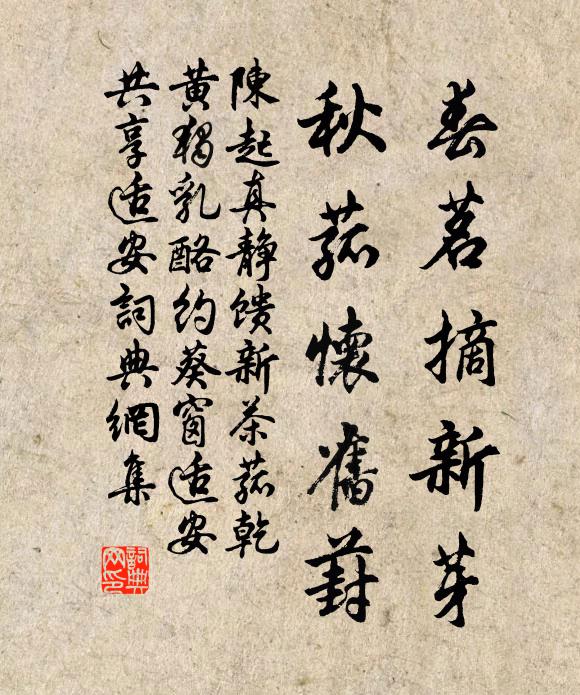 春茗摘新芽
秋菰懷舊葑
陳起真靜馈新茶菰乾
黃獨乳酪約葵窗适安
共享适安詞典網集
詞典网印